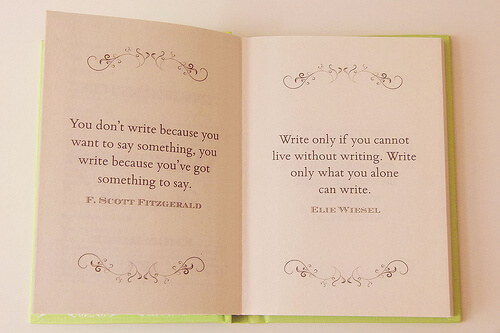 You don't write because you
want to say something, you
write because you've got
something to say.
F. Scott Fitzgerald
Write only if you cannot
live without writing. Write
only what you alone
can write.
Elie Wiesel